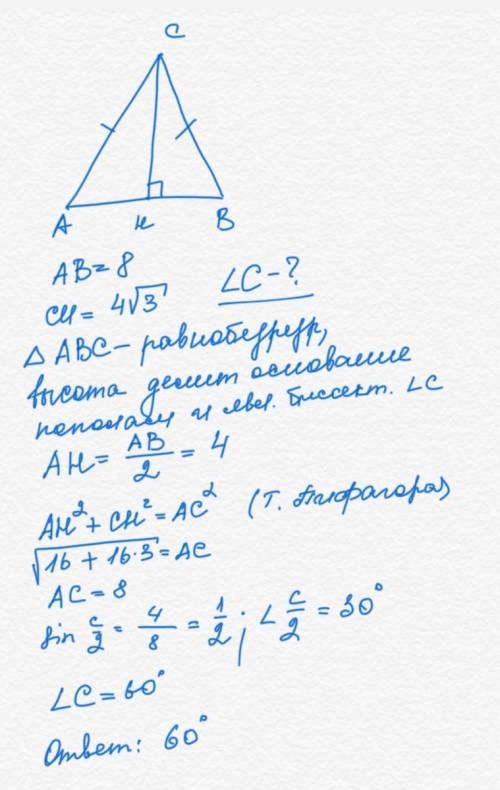 C
A H B
AB = 8
CH = 4√3 ∠C - ?
△ ABC - равнобедр,
высота делит основание
пополам и явл. биссект. ∠C
AH = AB/2 = 4
AH² + CH² = AC² (т. Пифагора)
√(16 + 16·3) = AC
AC = 8
sin C/2 = 4/8 = 1/2 ; ∠ C/2 = 30°
∠C = 60°
Ответ: 60°